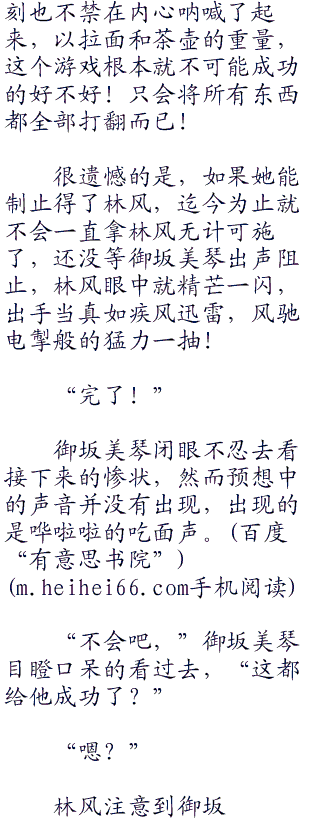 刻也不禁在内心呐喊了起
来，以拉面和茶壶的重量，
这个游戏根本就不可能成功
的好不好！只会将所有东西
都全部打翻而已！
很遗憾的是，如果她能
制止得了林风，迄今为止就
不会一直拿林风无计可施
了，还没等御坂美琴出声阻
止，林风眼中就精芒一闪，
出手当真如疾风迅雷，风驰
电掣般的猛力一抽！
“完了！”
御坂美琴闭眼不忍去看
接下来的惨状，然而预想中
的声音并没有出现，出现的
是哗啦啦的吃面声。(百度
“有意思书院”)
(m.heihei66.com手机阅读)
“不会吧，”御坂美琴
目瞪口呆的看过去，“这都
给他成功了？”
“嗯？”
林风注意到御坂